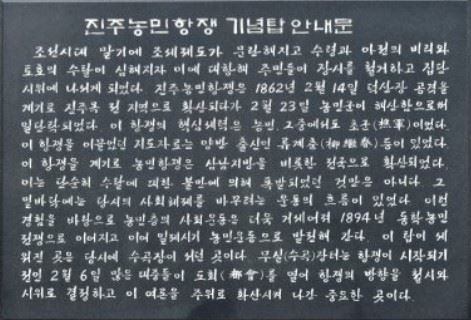 진주농민항쟁 기념탑 안내문
조선시대 말기에 조세제도가 문란해지고 수령과 아전의 비리와
토호의 수탈이 심해지자 이에 대항해 주민들이 장시를 철거하고 집단
시위에 나서게 되었다. 진주농민항쟁은 1862년 2월 14일 덕산장 공격을
계기로 진주목 전 지역으로 확산되다가 2월 23일 농민군이 해산함으로써
일단락되었다. 이 항쟁의 핵심세력은 농민, 그중에서도 초군(樵軍)이었다.
이 항쟁을 이끌었던 지도자로는 양반 출신인 류계춘(柳繼春)등이 있었다.
이 항쟁을 계기로 농민항쟁은 삼남지방을 비롯한 전국으로 확산되었다.
이는 단순히 수탈에 대한 불만에 의해 폭발되었던 것만은 아니다. 그
밑바닥에는 당시의 사회체제를 바꾸려는 운동의 흐름이 있었다. 이런
경험을 바탕으로 농민층의 사회운동은 더욱 거세어져 1894년 동학농민
전쟁으로 이어지고 이어 일제시기 농민운동으로 발전해 간다. 이 탑이 세
워진 곳은 당시에 수곡장이 서던 곳이다. 무실(수곡)장터는 항쟁이 시작되기
전인 2월 6일 많은 대중들이 도회(都會)를 열어 항쟁의 방향을 철시와
시위로 결정하고 이 여론을 주위로 확산시켜 나간 중요한 곳이다.